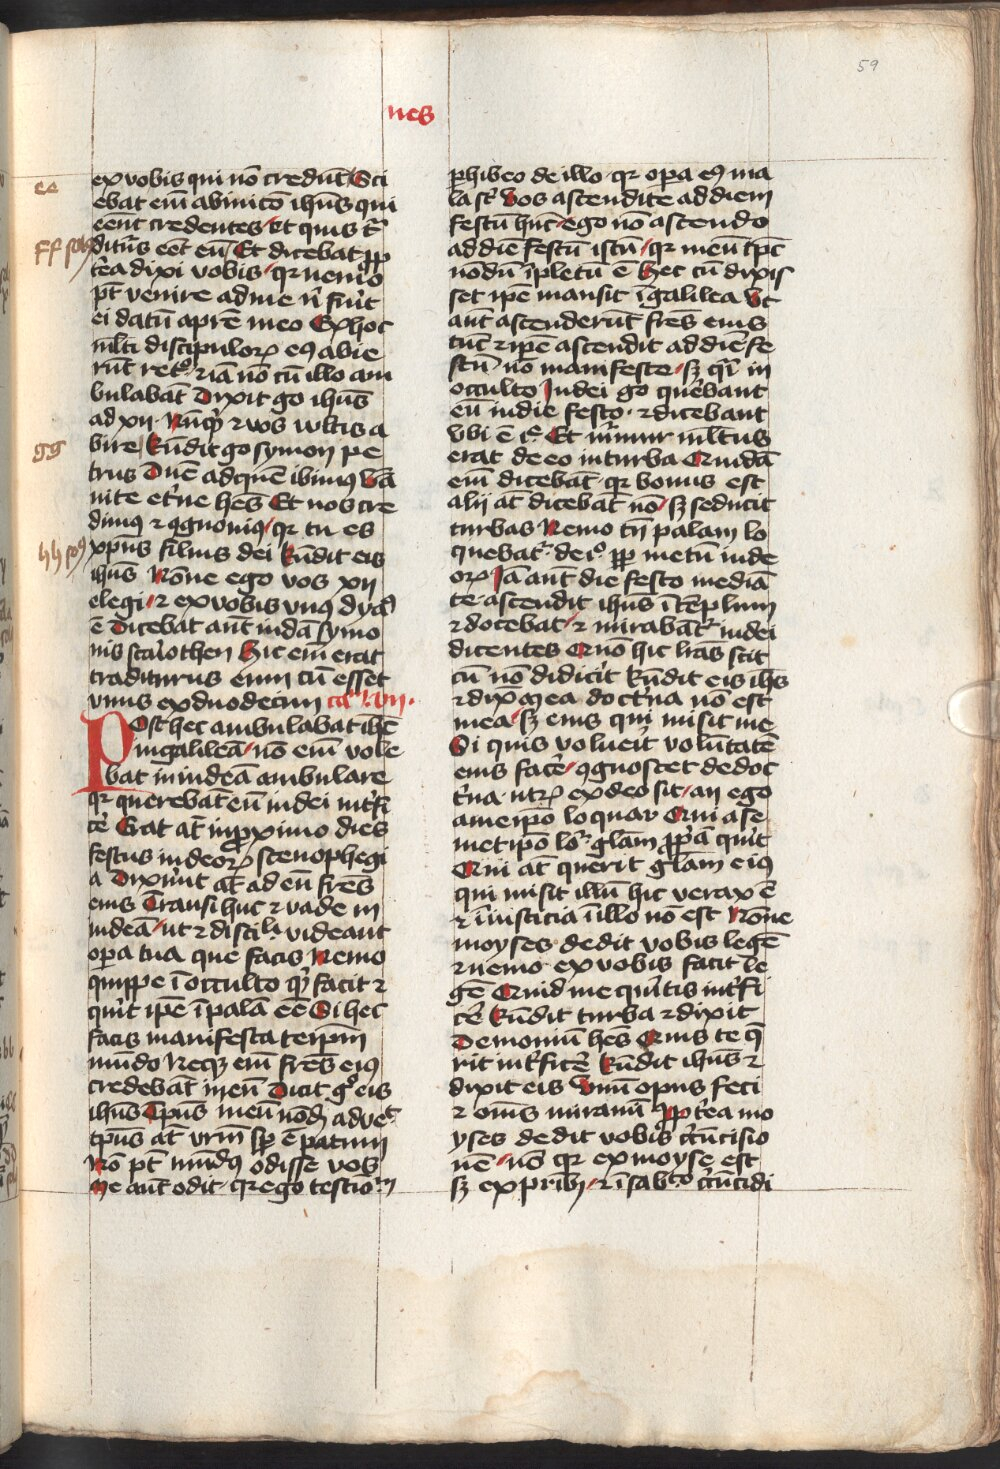 59
nes
ee
ex vobis qui nō credūt Sci
ebat em̄ ab inicō ihūs qui
eēnt credentes Et quis t̉
ditus̉ eēt eū Et dicebat ꝓp
tea dixi vobis qr nemo
pt̄ venire ad me n̄ fuīt
ei datū a pr̄e meo Ex hoc
ml̄ti discipuloꝝ eꝰ abie
rūt ret° ⁊ iā nō cū illo am
bulabāt Dixit go ihūs
ad xii Nūqͥ ⁊ vos vultis a
gg
bire Rn̄dit go symon pe
trus Dn̄e ad quē ibimꝰ v̄ba
vite et̉ne hēs Et nos cre
dimꝰ ⁊ ꝯgnouimꝰ qr tu es
xp̄us filius dei Rn̄dit eis
ihūs Nōne ego vos xii
elegi ⁊ ex vobis vnꝰ dyaꝰ
ē Dicebat aūt iudā symo
nis scariothen Hic em̄ erat
traditurus eum cū esset
vnus ex duodecim caᵐ vii.
Post hec ambulabat ihē
in galileā nō em̄ vole
bat in iudeā ambulare
qr querebāt eū iudei int̉fi
ce̅ Erat at̄ in ꝓximo dies
festus iudeoꝝ scenophegi
a Dixer̄unt at̄ ad eū frēs
eius Transi hinc ⁊ vade in
iudeā ut ⁊ disciˡⁱ videant
opa tua que facis Nemo
quippe ī occulto qͥ facit ⁊
quīt ipē ī palā eē Si hec
facis manifesta teip̄m
mūdo Neqꝫ em̄ frēs eiꝰ
credebāt in eū Dicit g° eis
ihūs Tp̄us meū nōdꝫ adveᵗ
tp̄us at̄ vrm̄ sp̄ ē patum
Nō pt̄ mūdꝰ odisse vos
me aūt odit qr ego testio̅m
phibeo de illo qr opa eꝰ ma
la st̄ Vos ascendite ad diem
festū hūc ego nō ascendo
ad diē festū istū qr meū tp̄c
nōdū īpletū ē Hec cū dixis
set ipē mansit ī galilea Ut
aūt ascenderūt frēs eius
tūc ⁊ ipē ascendit ad diē fe
stū nō manifeste sꝫ qͣi in
occulto Iudei go querebant
eū in die festo ⁊ dicebant
vbi ē i̅ᵉ Et mur̄mur ml̄tus
erat de eo in turba Quidā
em̄ dicebāt qr bonus est
alij at̄ dicebāt nō sꝫ seducit
turbas Nemo tn̄ palam lo
quebat̉ de i° ꝓp metū iude
oꝝ Iā aūt die festo mediā
te ascendit ihūs ī tēplum
⁊ docebat ⁊ mirabāt̉ iudei
dicentes Quō hic lr̄as scit
cū nō didicīt Rn̄dit eis ihs̄
⁊ dix̄ Mea doct̉na nō est
mea sꝫ eius qui misit me
Si quis voluerit volūtatē
eius face̅ ꝯgnoscet de doc
t̉na utꝝ ex deo sit an ego
a meipō loquar Qui a se
metipō lo̅ꝛ gl̄am ꝓp̄ā quīt
Qui at̄ querit gl̄am eiꝰ
qui misit illū hic verax ē
⁊ iniusticia ī illo nō est Nōne
moyses dedit vobis legē
⁊ nemo ex vobis facit le
gē Quid me quītis int̉fi
ce̅ Rn̄dit turba ⁊ dixit
Demoniū hēs Quis te q̄
rit int̉fice̅ Rn̄dit ihūs ⁊
dixit eis Vnū opus feci
⁊ om̄s mirami̅ ꝓp t̉ea mo
yses dedit vobis c̉cūcisio
nē nō qr ex moyse est
sꝫ ex prībꝫ ⁊ ī sabᵗᵒ c̉cūcidi